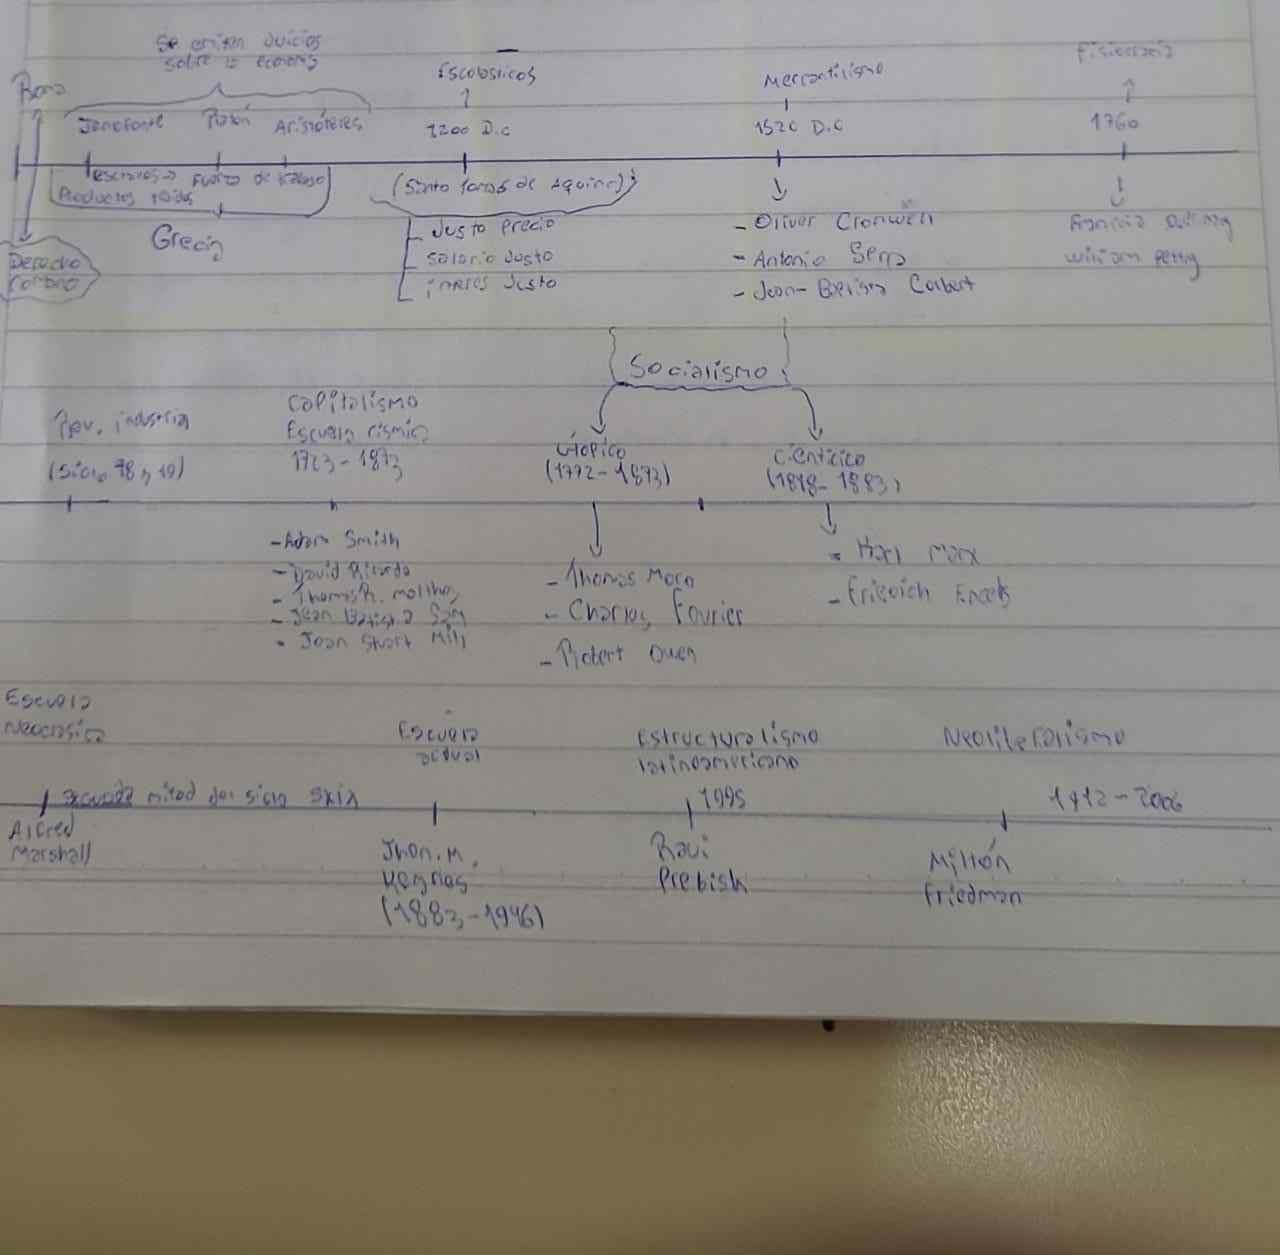 Se emiten Juicios
sobre la economía
Roma
Jenofonte Platón Aristóteles
Escolasticos
1200 D.C
Mercantilismo
1520 D.C
Fisiocracia
1760
esclavos→ Fuerza de trabajo
Productos
Grecia
Derecho
romano
(Santo Tomas de Aquino)
Justo Precio
Salario Justo
interes Justo
- Oliver Cromwell
- Antonio Serra
- Jean-Batista Colbert
William Petty
Socialismo
Rev. industrial
(Siglo 18 y 19)
Capitalismo
Escuela clásica
1723-1873
Utópico
(1772-1873)
Científico
(1818-1883)
-Adam Smith
-David Ricardo
-Thomas R. Malthus
-Jean Batista Say
- Joan Stuart Mill
-Thomas Moro
- Charles Fourier
- Robert Owen
- Karl Marx
- Friedrich Engels
Escuela
Neoclásica
Segunda mitad del siglo XIX
Alfred
Marshall
Escuela
actual
Jhon. M.
Keynes
(1883-1946)
Estructuralismo
latinoamericano
1995
Raúl
Prebish
Neoliberalismo
1912-2006
Miltón
Friedman